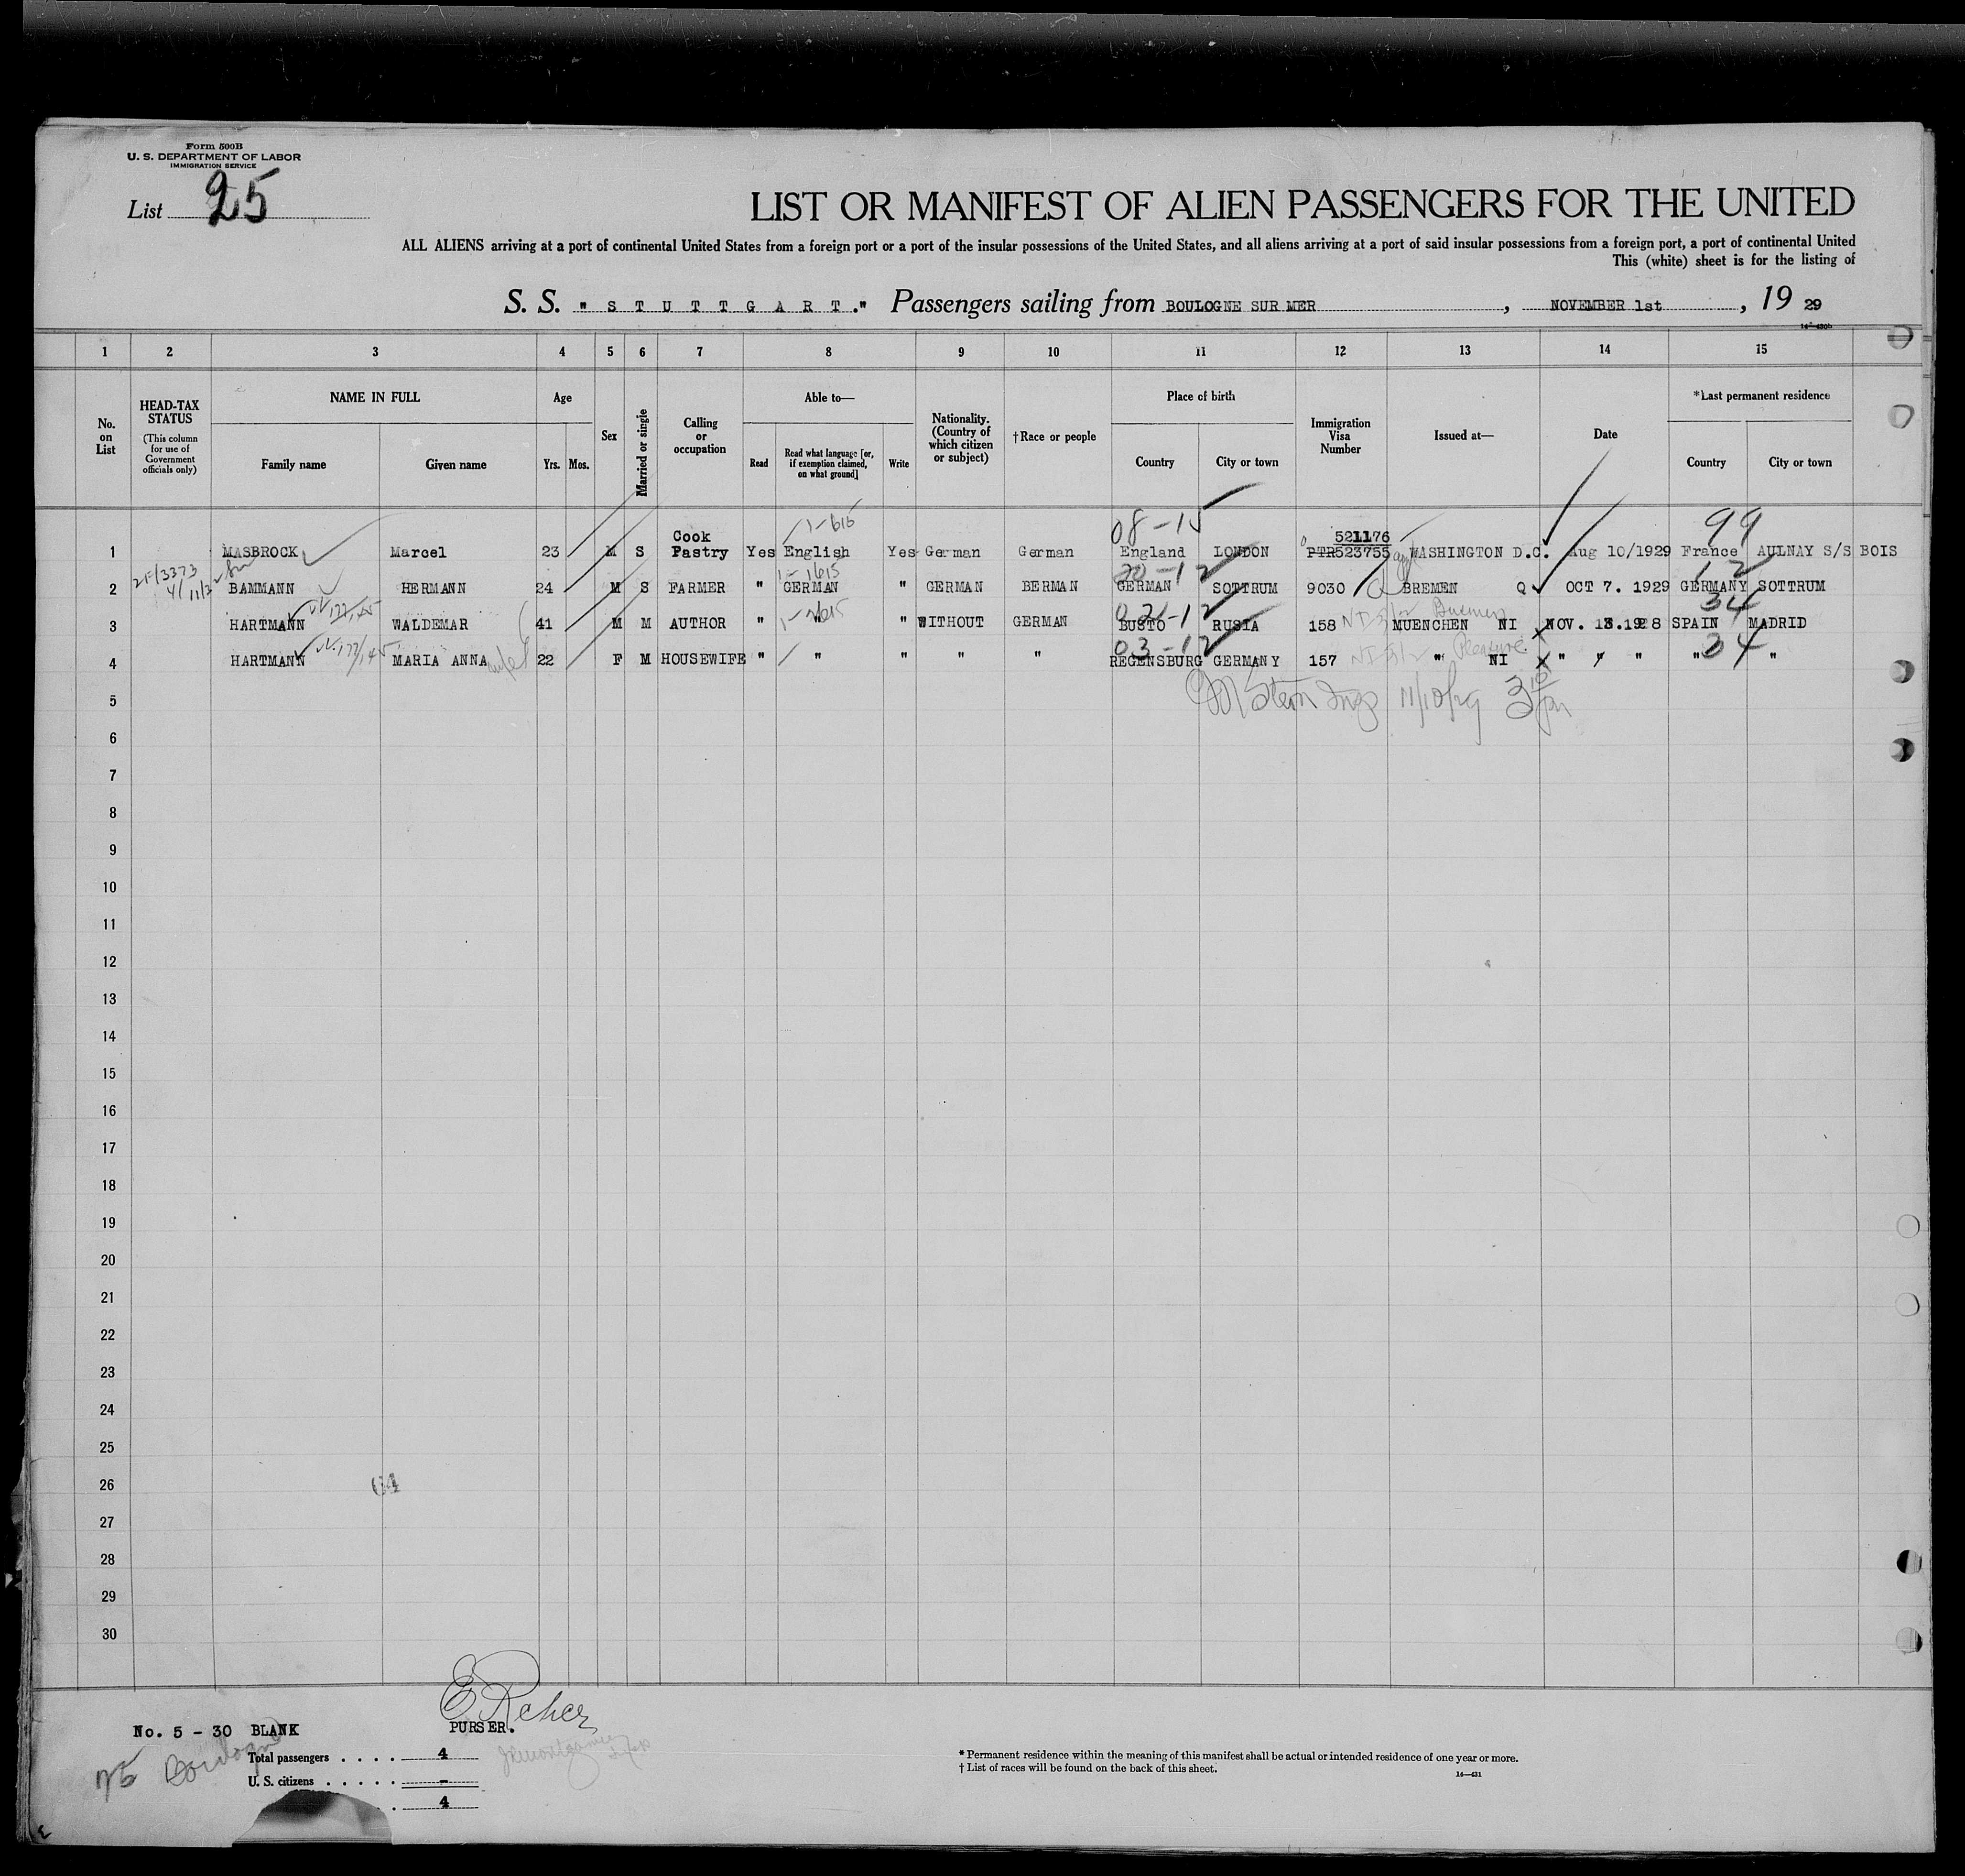 Form 500B
U. S. DEPARTMENT OF LABOR
IMMIGRATION SERVICE
List 25
LIST OR MANIFEST OF ALIEN PASSENGERS FOR THE UNITED
ALL ALIENS arriving at a port of continental United States from a foreign port or a port of the insular possessions of the United States, and all aliens arriving at a port of said insular possessions from a foreign port, a port of continental United
This (white) sheet is for the listing of
S. S. "STUTTGART." Passengers sailing from BOULOGNE SUR MER, NOVEMBER 1st, 19 29
1 2 3 4 5 6 7 8 9 10 11 12 13 14 15
No. on List
HEAD-TAX STATUS
(This column for use of Government officials only)
NAME IN FULL
Family name
Given name
Age
Yrs.
Mos.
Sex
Married or single
Calling or occupation
Able to—
Read
Read what language [or, if exemption claimed, on what ground]
Write
Nationality. (Country of which citizen or subject)
†Race or people
Place of birth
Country
City or town
Immigration Visa Number
Issued at—
Date
*Last permanent residence
Country
City or town
1-615
08-15
99
1 MASBROCK Marcel 23 M S Cook Pastry Yes English Yes German German England LONDON 521176 PTR523755 WASHINGTON D.C. Aug 10/1929 France AULNAY S/S BOIS
20-12
12
2 BAMMANN HERMANN 24 M S FARMER " GERMAN " GERMAN BERMAN GERMAN SOTTRUM 9030 BREMEN Q OCT 7. 1929 GERMANY SOTTRUM
34
3 HARTMANN WALDEMAR 41 M M AUTHOR " " " WITHOUT GERMAN BUSTO RUSIA 158 MUENCHEN NI NOV. 13.1928 SPAIN MADRID
03-12
34
4 HARTMANN MARIA ANNA wife 22 F M HOUSEWIFE " " " " " REGENSBURG GERMANY 157 " NI " " " " "
Pleasure
11/10/29
5
6
7
8
9
10
11
12
13
14
15
16
17
18
19
20
21
22
23
24
25
26
64
27
28
29
30
No. 5 - 30 BLANK
PURSER.
Total passengers . . . . 4
U. S. citizens . . . . . -
4
Boulogne
* Permanent residence within the meaning of this manifest shall be actual or intended residence of one year or more.
† List of races will be found on the back of this sheet.
14—431